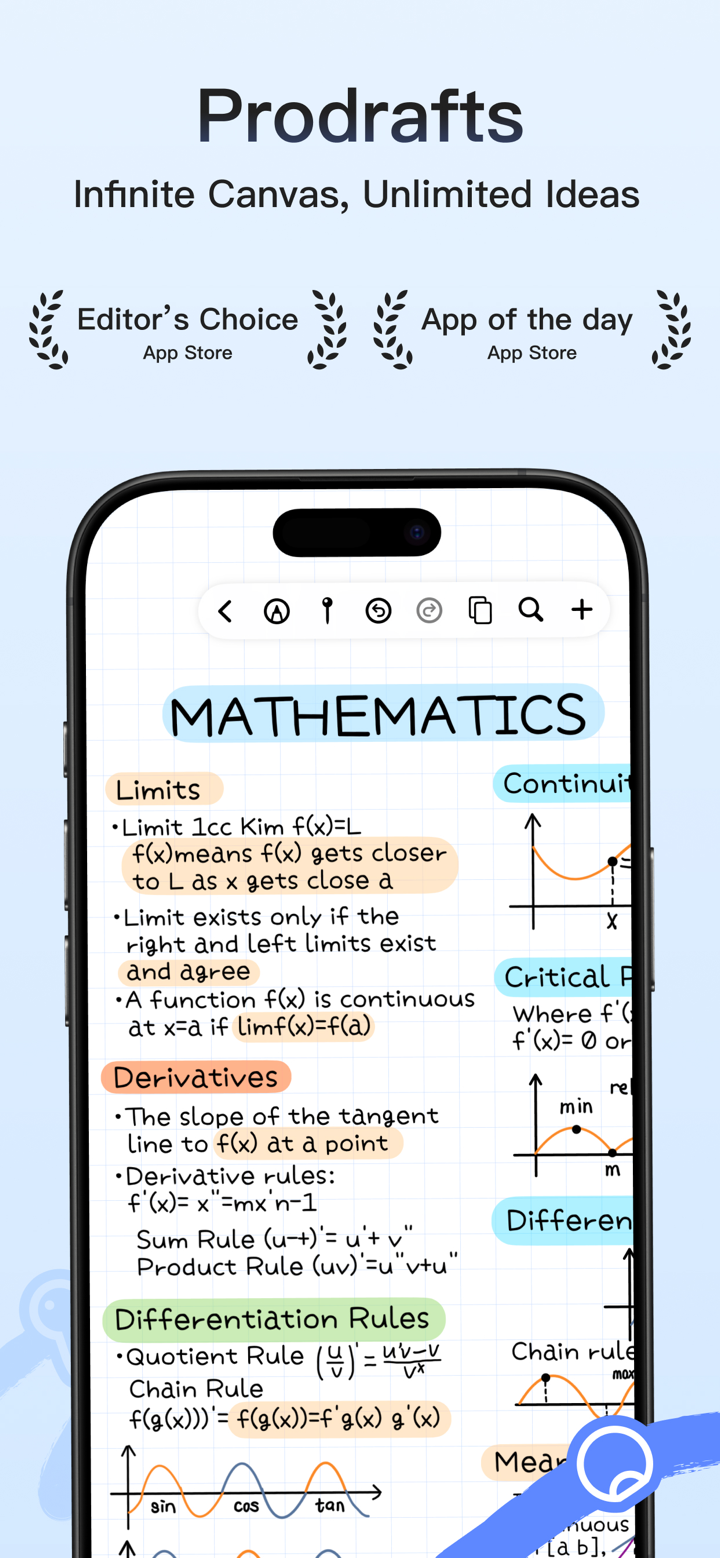 Prodrafts
Infinite Canvas, Unlimited Ideas
Editor's Choice
App Store
App of the day
App Store
MATHEMATICS
Limits
•Limit 1cc Kim f(x)=L
f(x)means f(x) gets closer
to L as x gets close a
•Limit exists only if the
right and left limits exist
and agree
•A function f(x) is continuous
at x=a if limf(x)=f(a)
Derivatives
•The slope of the tangent
line to f(x) at a point
•Derivative rules:
f'(x)= x"=mx'n-1
Sum Rule (u-+)'= u'+ v"
Product Rule (uv)'=u"v+u"
Differentiation Rules
•Quotient Rule (u/v)'= u'v-v/vˣ
Chain Rule
f(g(x)))'= f(g(x))=f'g(x) g'(x)
sin cos tan
Continuit
=
x
Critical P
Where f'(
f'(x)= 0 or
min
rel
m
Differen
Chain rule
max
Mear
nuous
[a b],